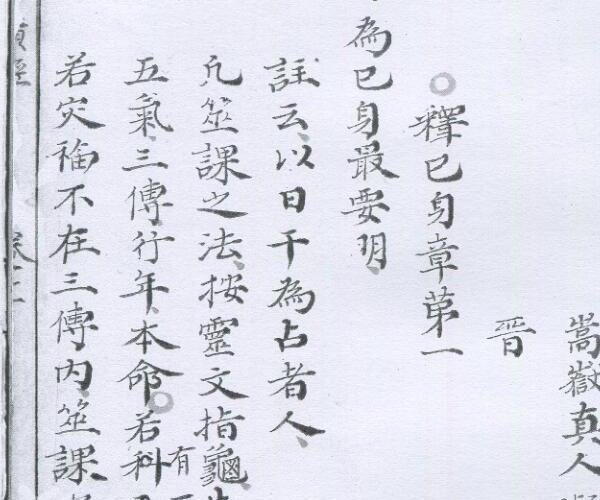 嵩嶽真人
晋
釋己身章第一
為己身最要明
註云以日干為占者人
凢筮課之法按靈文指龜
五氣三傳行年本命若科有
若灾福不在三傳内筮課